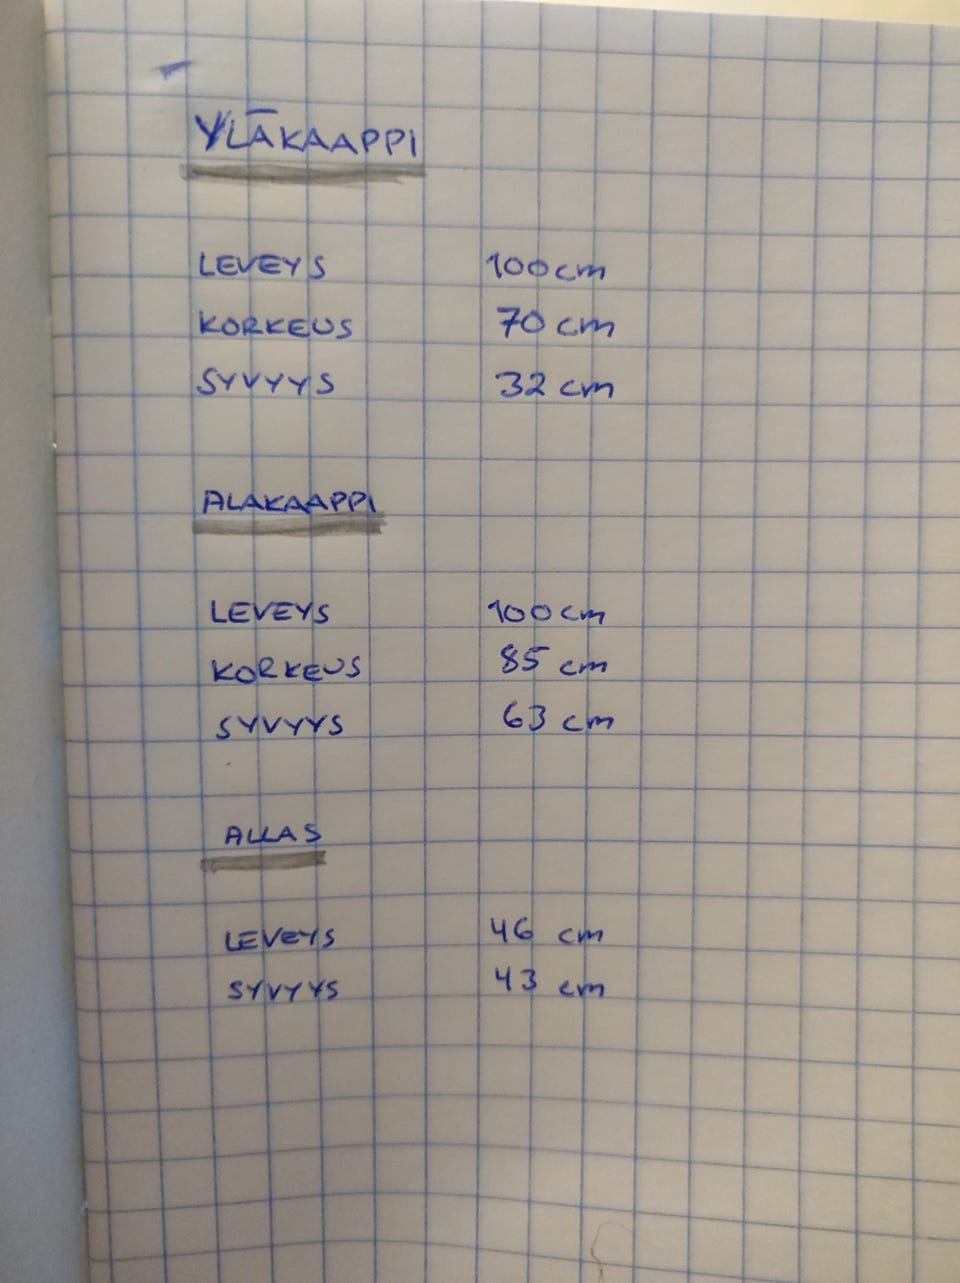 YLÄKAAPPI
LEVEYS 100 cm
KORKEUS 70 cm
SYVYYS 32 cm
ALAKAAPPI
LEVEYS 100 cm
KORKEUS 85 cm
SYVYYS 63 cm
ALLAS
LEVEYS 46 cm
SYVYYS 43 cm